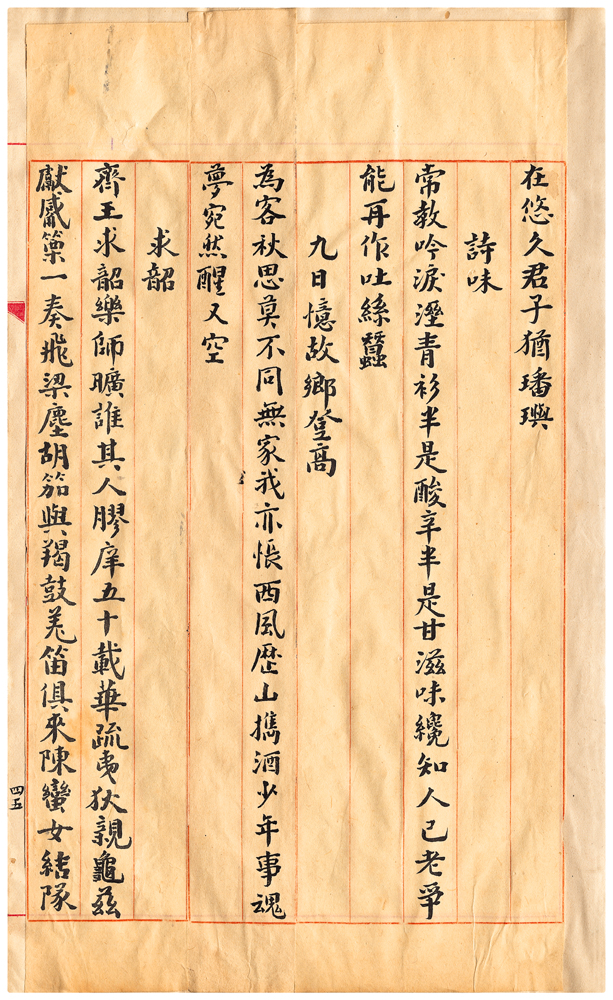 在悠久君子猶璠璵
詩味
常教吟淚溼青衫半是酸辛半是甘滋味纔知人已老爭
能再作吐絲蠶
九日憶故鄉登高
為客秋思莫不同無家我亦悵西風歷山攜酒少年事魂
夢宛然醒又空
求韶
齊王求韶樂師曠誰其人膠庠五十載華疏夷狄親龜茲
獻觱篥一奏飛梁塵胡笳與羯鼓羌笛俱來陳蠻女結隊
四五